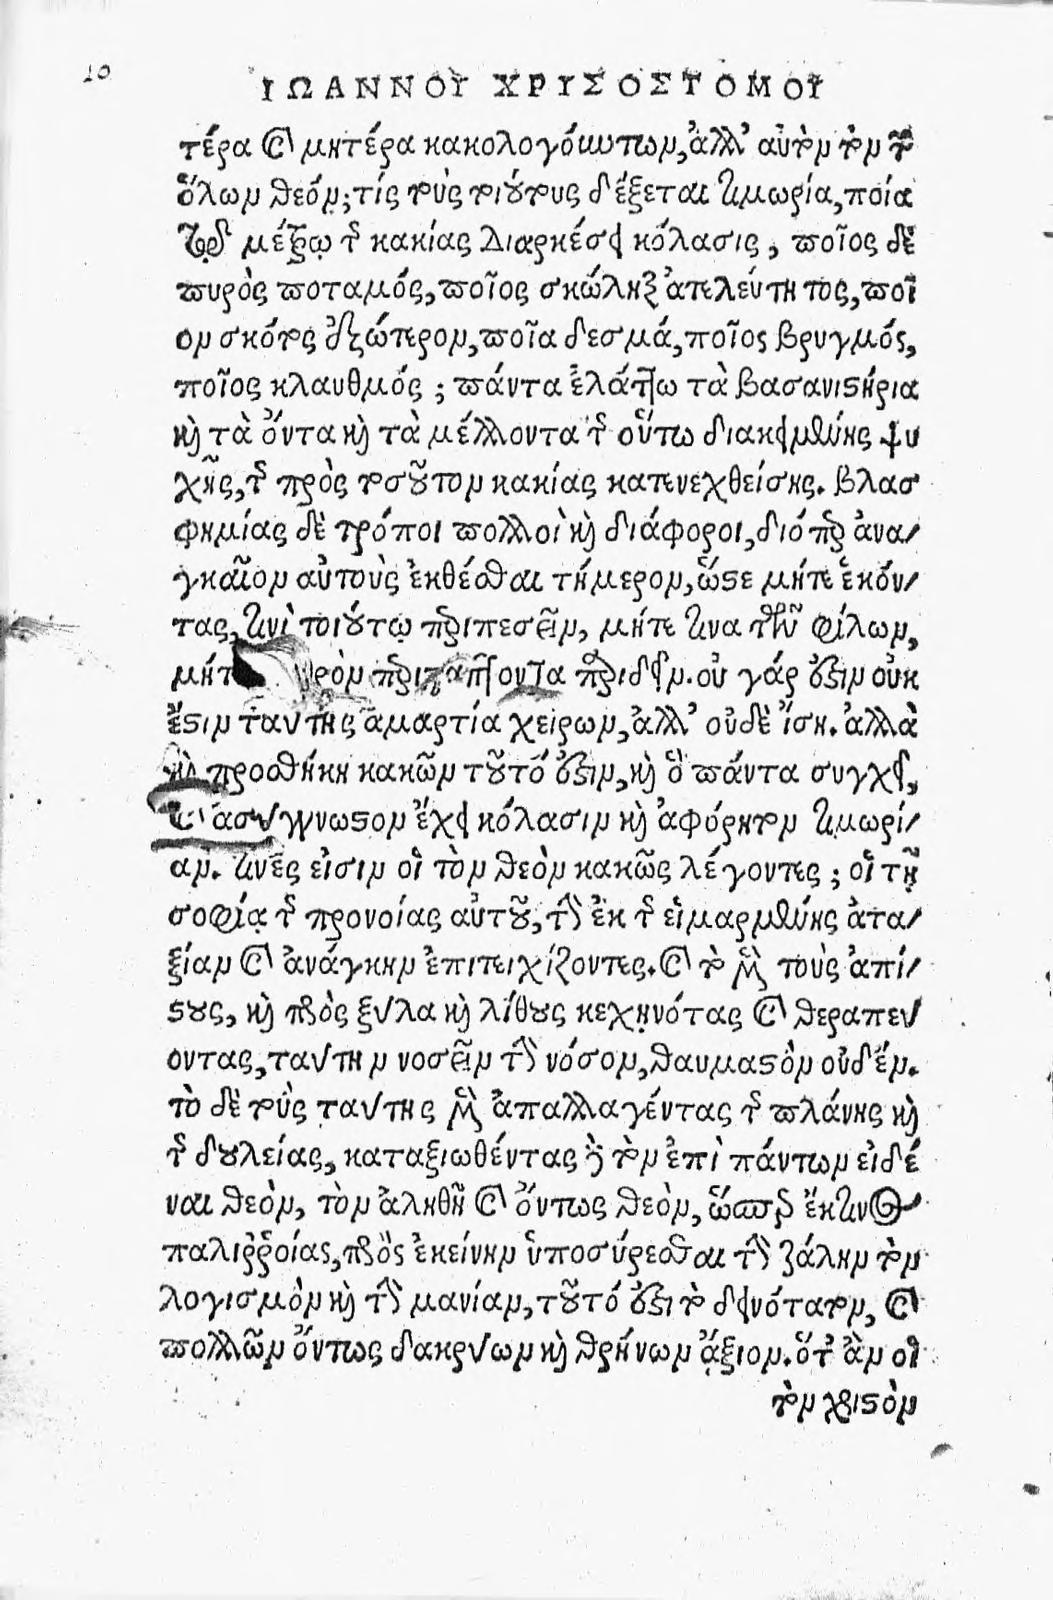 10
ΙΩΑΝΝΟΥ ΧΡΥΣΟΣΤΟΜΟΥ
τέρα καὶ μητέρα κακολογούντων, ἀλλ' αὐτὸν τὸν τῶν
ὅλων θεόν; τίς τοὺς τοιούτους δέξεται τιμωρία, ποία
τῷ μέτρῳ τῆς κακίας διαρκέσει κόλασις, ποῖος δὲ
πυρὸς ποταμός, ποῖος σκώληξ ἀτελεύτητος, ποῖ
ον σκότος ἐξώτερον, ποῖα δεσμά, ποῖος βρυγμός,
ποῖος κλαυθμός; πάντα ἐλάττω τὰ βασανιστήρια
καὶ τὰ ὄντα καὶ τὰ μέλλοντα τῆς οὕτω διακειμένης ψυ
χῆς, τῆς πρὸς τοσοῦτον κακίας κατενεχθείσης. βλασ
φημίας δὲ τρόποι πολλοὶ καὶ διάφοροι, διόπερ ἀνα-
γκαῖον αὐτοὺς ἐκθέσθαι τήμερον, ὥστε μήτε ἑκόν-
τας, τινὶ τοιούτῳ περιπεσεῖν, μήτε τινα τῶν φίλων,
μήτ ρὸν περιπίπτοντα περιιδεῖν. οὐ γάρ ἐστιν οὐκ
ἔστιν ταύτης ἁμαρτία χείρων, ἀλλ' οὐδὲ ἴση. ἀλλὰ
καὶ προσθήκη κακῶν τοῦτό ἐστιν, καὶ ὃ πάντα συγχεῖ,
καὶ ἀσύγγνωστον ἔχει κόλασιν καὶ ἀφόρητον τιμωρί-
αν. τινές εἰσιν οἳ τὸν θεὸν κακῶς λέγοντες; οἳ τῇ
σοφίᾳ τῆς προνοίας αὐτοῦ, τὴν ἐκ τῆς εἱμαρμένης ἀτα-
ξίαν καὶ ἀνάγκην ἐπιτειχίζοντες. καὶ τὸ μὲν τοὺς ἀπί-
στους, καὶ πρὸς ξύλα καὶ λίθους κεχηνότας καὶ θεραπεύ
οντας, ταύτην νοσεῖν τὴν νόσον, θαυμαστὸν οὐδέν.
τὸ δὲ τοὺς ταύτης μὲν ἀπαλλαγέντας τῆς πλάνης καὶ
τῆς δουλείας, καταξιωθέντας δὲ τὸν ἐπὶ πάντων εἰδέ
ναι θεὸν, τὸν ἀληθῆ καὶ ὄντως θεὸν, ὥσπερ ἔκ τινος
παλιῤῥοίας, πρὸς ἐκείνην ὑποσύρεσθαι τὴν ζάλην τῶν
λογισμὸν καὶ τὴν μανίαν, τοῦτό ἐστι τὸ δεινότατον, καὶ
πολλῶν ὄντως δακρύων καὶ θρήνων ἄξιον. ὅτ' ἂν οἱ
τὸν χριστὸν